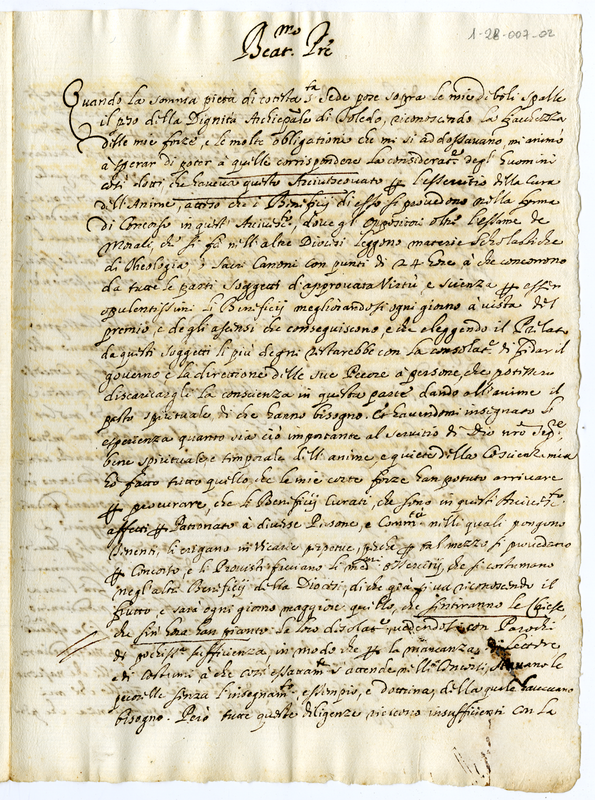 1-28-007-02
Beat.mo Pre
Quando la somma pietà di cotesta s.ta Sede pose sopra le mie deboli spalle
il peso della Dignità Archiepale di Toledo, riconoscendo la
delle mie forze, e le molte obligationi che mi si addossavano, mi animò
à sperar di poter à quelle corrispondere la considerat.e degl' huomini
così dotti che haveva questo Arcivescovato per l'essercitio della Cura
dell'Anime, atteso che i Beneficij di esso si provedono nella forma
di Concorso in questi dove gl' Oppositori oltre l'essame de
Morali, che si fà nell' altre Diocesi leggono materie Scholastiche
di Theologia, e Sacri Canoni con punti di 24 hore à che concorrono
da tutte le parti Soggetti d'approvata Virtù e scienza per esser
opulentissimi li Beneficij megliorandosi ogni giorno à vista del
premio, e degli ascensi che conseguiscono, e che eleggendo il Prelato
da questi Soggetti li più degni restarebbe con la consolat.e di fidar il
governo e la direttione delle sue Pecore à persone, che potessero
discaricargli la conscienza in questa parte dando all'anime il
pasto spirituale di che hanno bisogno. Et havendomi insegnato l'
esperienza quanto sia ciò importante al servitio di Dio nro Sig.e
bene spirituale, e temporale dell' anime e quiete della Coscienz. mia
hò fatto tutto quello, che le mie corte forze han potuto arrivare
per procurare, che li Beneficij Curati, che sono in questo
affetti per Patronato à diverse Persone, e Comm.tà nelli quali pongono
Tenenti, si erigano in Vicarie perpetue, perche per tal mezzo si provedano
per Concorso, e li Provisti faciano li med.mi essercitij, che si costumano
negl'altri Beneficij della Diocesi, di che già si và riconoscendo il
frutto, e sarà ogni giorno maggiore quello, che sentiranno le Chiese
che fin' hora han pianto la loro desolat.e, vedendosi con Parochi
di pochiss.a sufficienza, in modo che per la mancanza di Lettere
e di Costumi à che così essattam.te s'attende nelli Concorsi, stavano le
pecorelle senza l'insegnam.to, essempio, e dottrina, della quale havevano
bisogno. Però tutte queste diligenze riescono insufficienti con la